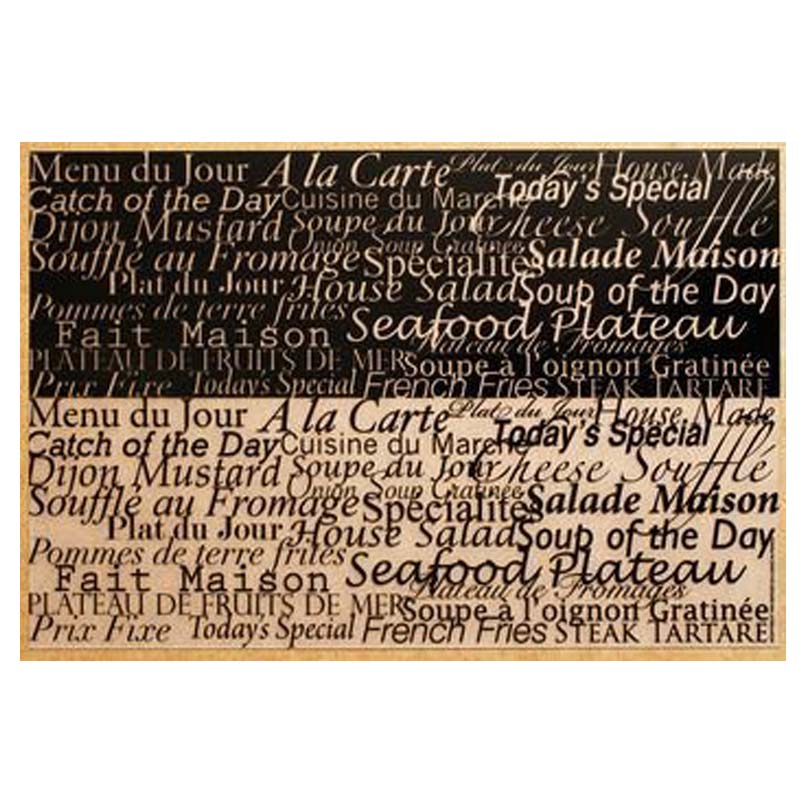 Menu du Jour A la Carte Plat du Jour House Made
Catch of the Day Cuisine du Marche Today's Special
Dijon Mustard Soupe du Jour Cheese Soufflé
Onion Soup Gratinee
Soufflé au Fromage Spécialités Salade Maison
Plat du Jour House Salad Soup of the Day
Pommes de terre frites
Fait Maison Seafood Plateau
Plateau de Fromages
PLATEAU DE FRUITS DE MER Soupe à l'oignon Gratinée
Prix Fixe Today's Special French Fries STEAK TARTARE
Menu du Jour A la Carte Plat du Jour House Made
Catch of the Day Cuisine du Marche Today's Special
Dijon Mustard Soupe du Jour Cheese Soufflé
Onion Soup Gratinee
Soufflé au Fromage Spécialités Salade Maison
Plat du Jour House Salad Soup of the Day
Pommes de terre frites
Fait Maison Seafood Plateau
Plateau de Fromages
PLATEAU DE FRUITS DE MER Soupe à l'oignon Gratinée
Prix Fixe Today's Special French Fries STEAK TARTARE